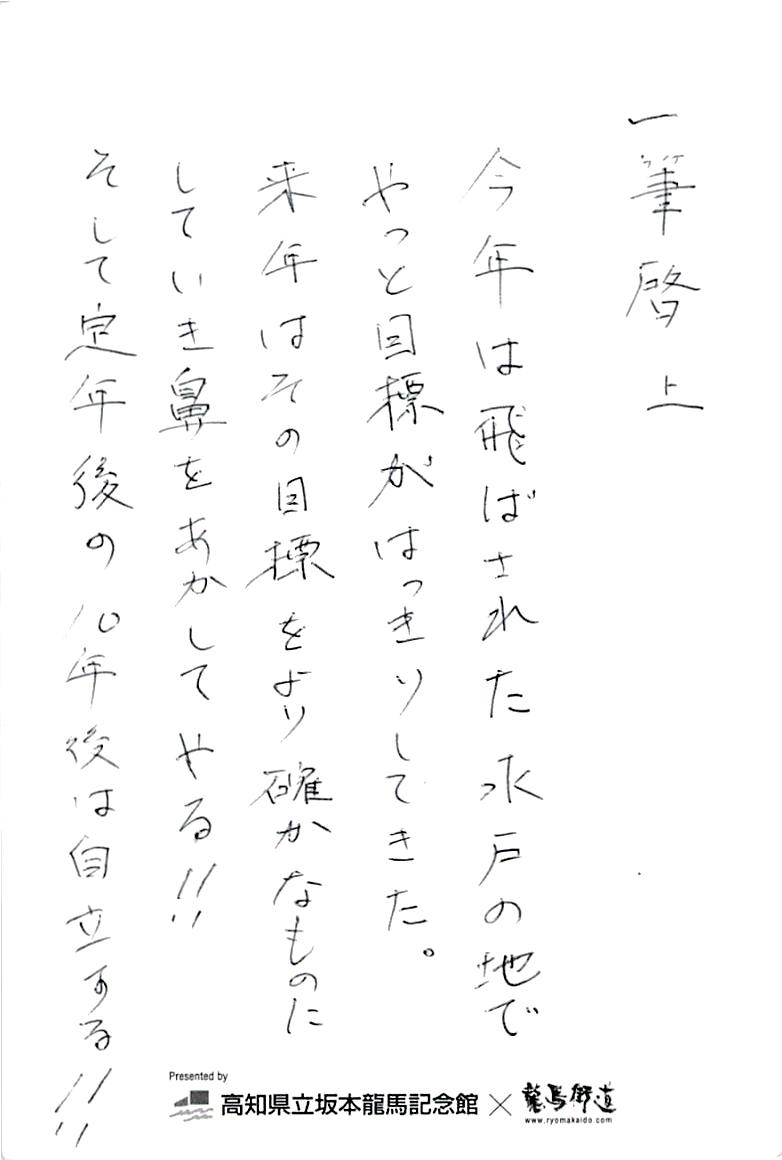 一筆啓上
今年は飛ばされた水戸の地で
やっと目標がはっきりしてきた。
来年はその目標をより確かなものに
していき鼻をあかしてやる!!
そして定年後の10年後は自立する!!
Presented by
高知県立坂本龍馬記念館×龍馬街道
www.ryomakaido.com